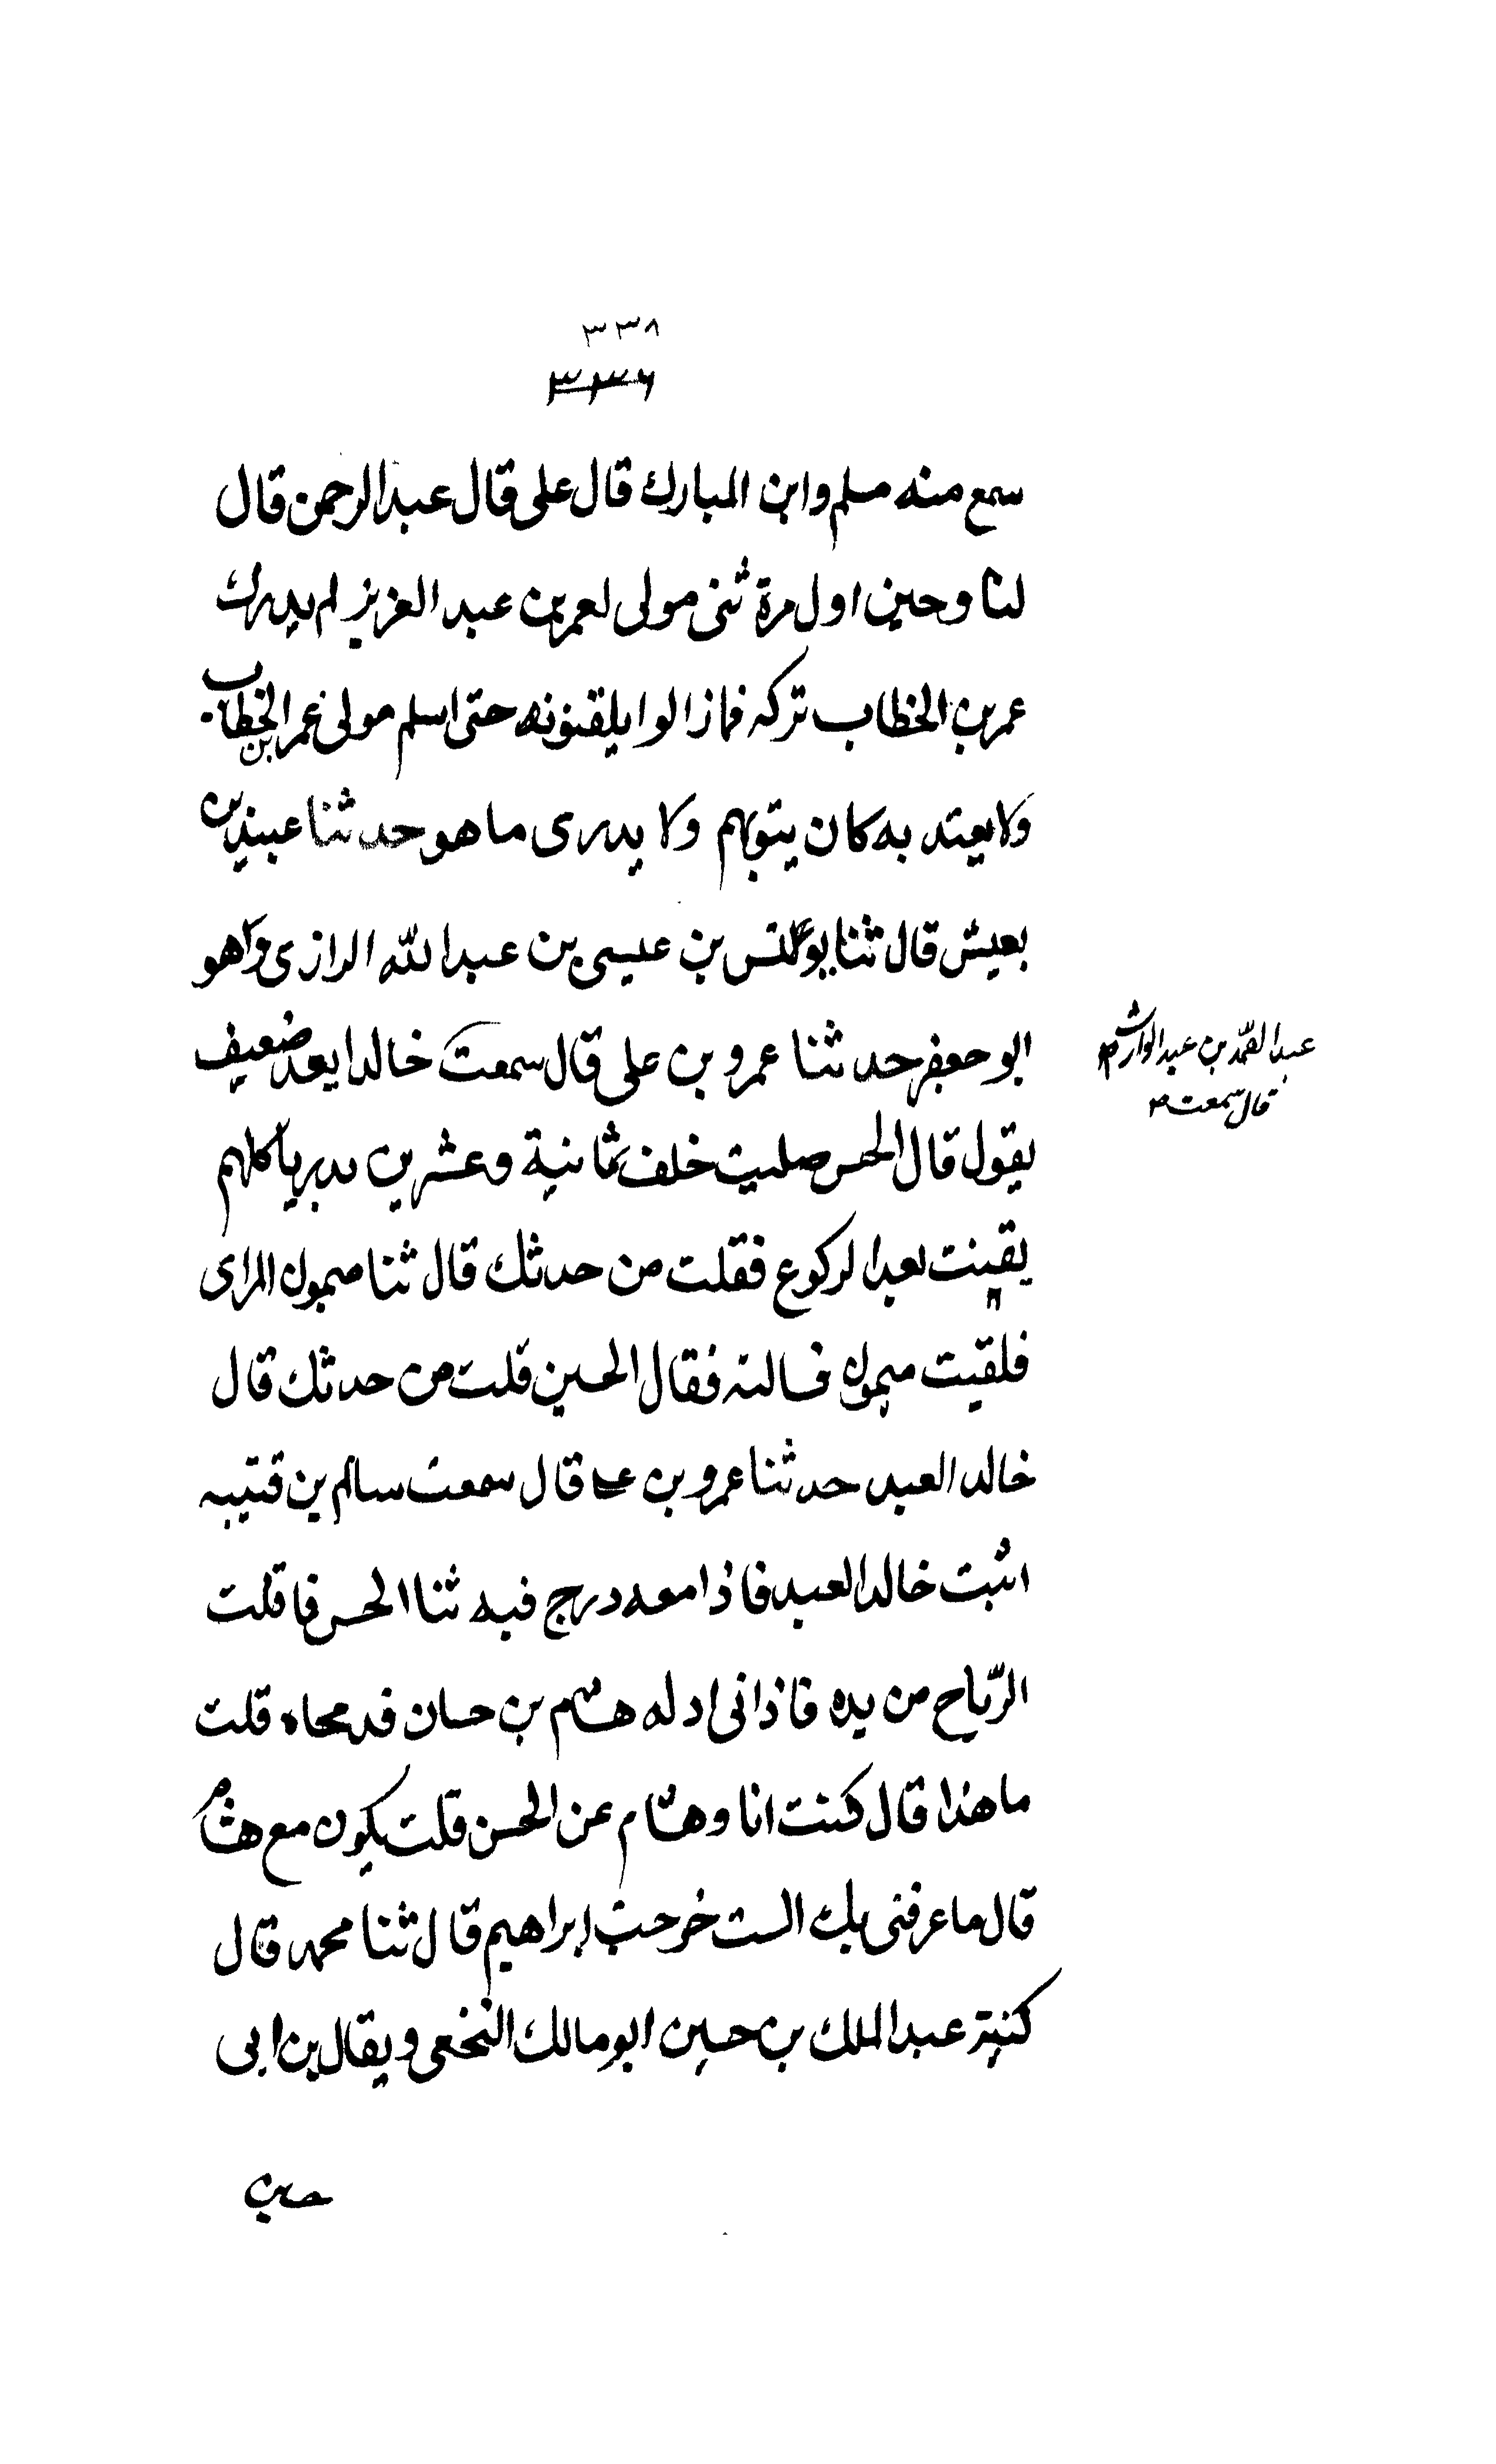 ٣٣٨
٣٣٦
سمع منه مسلم وابن المبارك قال علی قال عبد الرحمن قال
لنا وحين اول مرة ثنی مولی لعمر بن عبد العزيز لم يدرك
عمر بن الخطاب تركه فما زالوا يلقنونه حتی اسلم مولی عمر بن الخطاب
ولا يعتد به كان يتوهم ولا يدری ما هو حدثنا عبيد بن
يعيش قال ثنا يونس بن عيسی بن عبد الله الرازی وهو
ابو جعفر حدثنا عمرو بن علی قال سمعت خالدا يعد ضعيف
عبد الصمد بن عبد الوارث
قال سمعت
يقول قال الحسن صليت خلف ثمانية وعشرين بدريا كلهم
يقنت بعد الركوع فقلت من حدثك قال ثنا ميمون المرای
فلقيت ميمون فسالته فقال الحسين قلت من حدثك قال
خالد العبد حدثنا عمرو بن علی قال سمعت سالم بن قتيبه
اتيت خالد العبد فاذا معه درج فيه ثنا الحسن فاقلت
الرياح من يده فاذا فی اوله هشام بن حسان قد محاه قلت
ما هذا قال كنت انا وهشام عن الحسن قلت يكون مع هشام
قال ما عرفنی بك الست خرجت ابراهيم قال ثنا محمد قال
كنية عبد الملك بن حسين ابو مالك النخعی ويقال بن ابی
حسين